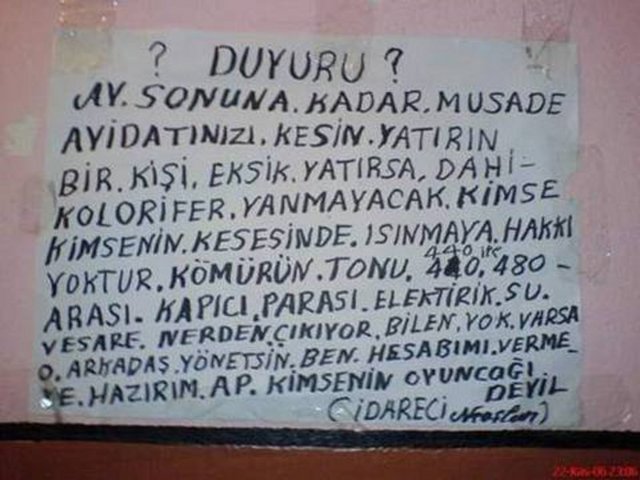 ? DUYURU ?
AY. SONUNA. KADAR. MUSADE
AYIDATINIZI. KESİN. YATIRIN
BİR. KİŞİ. EKSİK. YATIRSA, DAHİ-
KOLORİFER. YANMAYACAK. KİMSE
KİMSENİN. KESESİNDE. ISINMAYA. HAKKI
YOKTUR. KÖMÜRÜN. TONU. 440. 480-
ARASI. KAPICI. PARASI. ELEKTİRİK. SU.
VESARE. NERDEN. ÇIKIYOR. BİLEN. YOK. VARSA
O. ARKADAŞ. YÖNETSİN. BEN. HESABIMI. VERME-
YE. HAZIRIM. AP. KİMSENİN OYUNCAĞI
DEYİL
(İDARECİ
22-Kas-06 23:06